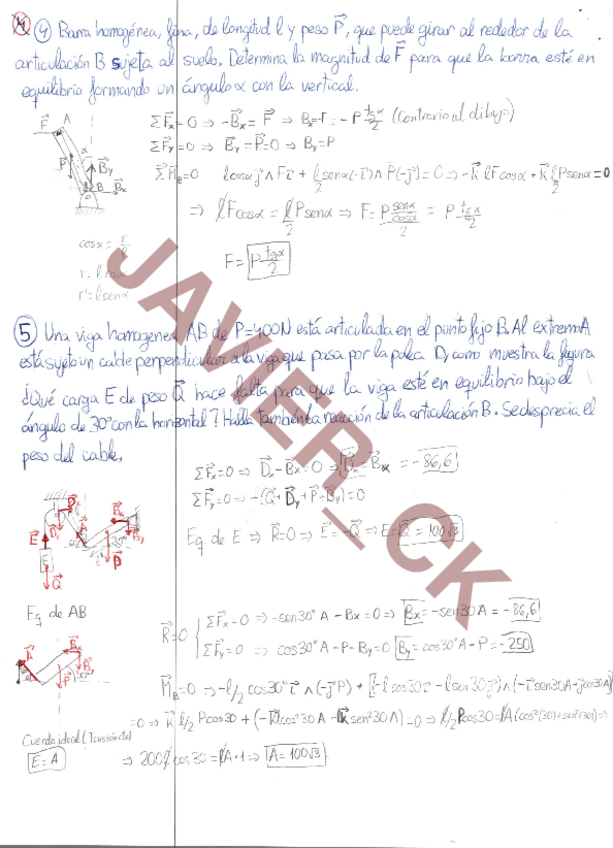 ④ Barra homogénea, fina, de longitud l y peso P⃗, que puede girar alrededor de la
articulación B sujeta al suelo. Determina la magnitud de F⃗ para que la barra esté en
equilibrio formando un ángulo α con la vertical.
ΣF⃗x=0 ⇒ -B⃗x = F⃗ ⇒ Bx=-F = -P tgα/2 (Contrario al dibujo)
ΣF⃗y=0 ⇒ B⃗y-P⃗=0 ⇒ By=P
ΣM⃗B=0 lcosα j⃗ ∧ Fi⃗ + l/2 senα(-i⃗) ∧ P(-j⃗)=0 ⇒ -k⃗ lFcosα + k⃗ l/2 Psenα = 0
⇒ lFcosα = l/2 Psenα ⇒ F = P senα/cosα /2 = P tgα/2
F = P tgα/2
F⃗ A P⃗ α B⃗y B B⃗x
cosα = r/l
r'=lsenα
⑤ Una viga homogénea AB de P=400N está articulada en el punto fijo B. Al extremo A
está sujeto un cable perpendicular a la viga que pasa por la polea D, como muestra la figura
¿Qué carga E de peso Q⃗ hace falta para que la viga esté en equilibrio bajo el
ángulo de 30° con la horizontal? Halla también la reacción de la articulación B. Se desprecia el
peso del cable.
ΣF⃗x=0 ⇒ D⃗x-Bx=0 ⇒ D⃗x=B⃗x = -86,6
ΣF⃗y=0 ⇒ -(Q⃗+D⃗y+P⃗-B⃗y)=0
Eq de E ⇒ R⃗=0 ⇒ E⃗=-Q⃗ ⇒ E=Q = 100√3
E⃗ E Q⃗ A⃗ P⃗ 30°
Eq de AB
R⃗=0
ΣF⃗x=0 ⇒ -sen30°A-Bx=0 ⇒ Bx=-sen30A = -86,6
ΣF⃗y=0 ⇒ cos30°A-P-By=0 By=cos30°A-P = -250
A⃗ B⃗x B⃗y P⃗ 30°
M⃗B=0 ⇒ -l/2 cos30°i⃗ ∧ (-j⃗P) + [-lcos30i⃗ - lsen30j⃗] ∧ (-i⃗sen30A-j⃗cos30A)
=0 ⇒ k⃗ l/2 Pcos30 + (-k⃗lcos²30°A - k⃗ sen²30A)=0 ⇒ l/2 Pcos30 = lA(cos²(30)+sen²(30)) ⇒
Cuerda ideal (Tensión cte)
E=A
⇒ 200lcos30 = lA·1 ⇒ A=100√3
JAVIER_CK